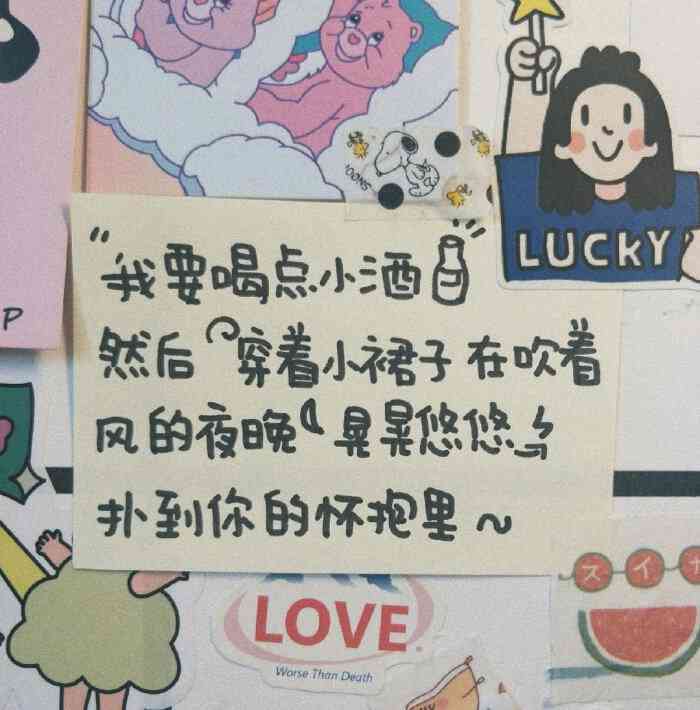 SNOOPY
LUCKY
P
“我要喝点小酒
然后穿着小裙子在吹着
风的夜晚晃晃悠悠
扑到你的怀抱里～
LOVE
Worse Than Death
スイカ